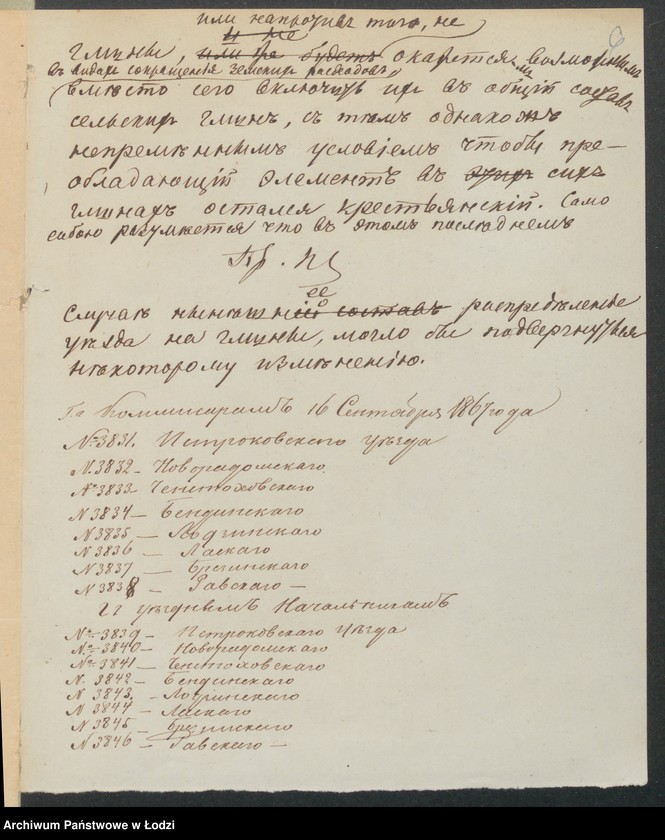 или напротив того, не
и не
гмины, или не будетъ окажется ли возможнымъ
въ видахъ сокращенія земскихъ расходовъ,
вмѣсто сего включить ихъ въ общій составъ
сельскихъ гминъ, съ тѣмъ однакожъ
непремѣннымъ условіемъ чтобы пре-
обладающій элементъ въ этихъ сихъ
гминахъ остался крестьянскій. Само
собою разумѣется что въ этомъ послѣднемъ
ее
случаѣ нынѣшній составъ распредѣленіе
уѣзда на гмины, могло бы подвергнуться
нѣкоторому измѣненію.
Гг Коммисарамъ 16 Сентября 1867 года
№ 3831. Петроковскаго уѣзда
№ 3832 - Новорадомскаго
№ 3833 Ченстоховскаго
N 3834 — Бендинскаго
N 3835 — Лодзинскаго
N 3836 — Ласкаго
N 3837 — Брезинскаго
N 3838 — Равскаго —
Гг уѣзднымъ Начальникамъ
№ 3839 — Петроковскаго Уѣзда
№ 3840 — Новорадомскаго
№ 3841 — Ченстоховскаго
N. 3842 — Бендинскаго
N 3843. — Лодзинскаго
N 3844 — Ласкаго
N 3845 — Брезинскаго
N 3846 — Равскаго —
Archiwum Państwowe w Łodzi